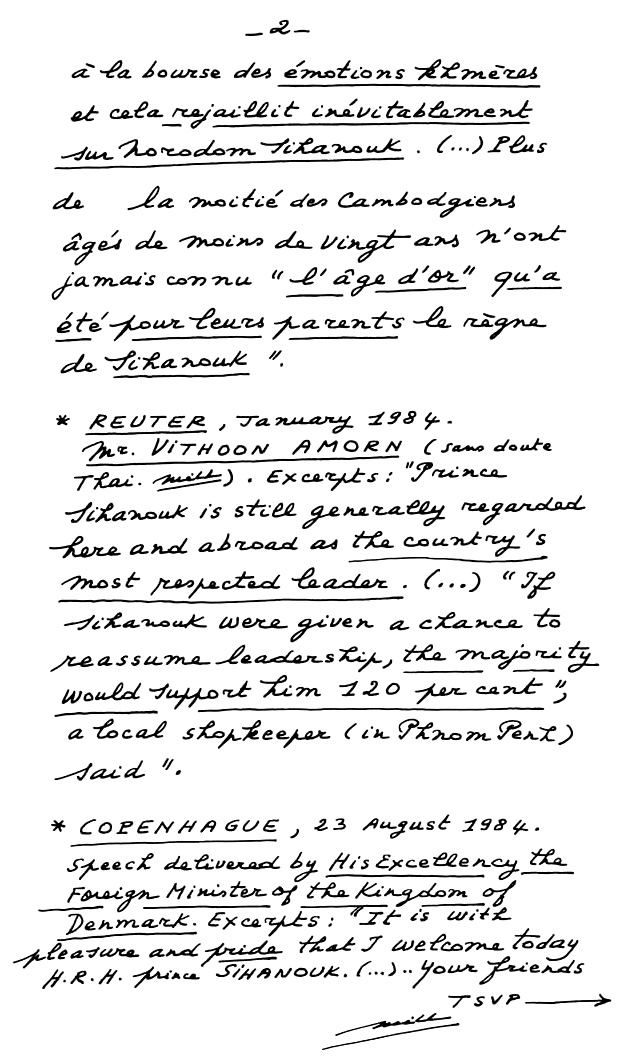 - 2 -
à la bourse des émotions khmères
et cela rejaillit inévitablement
sur Norodom Sihanouk. (...) Plus
de la moitié des Cambodgiens
âgés de moins de vingt ans n'ont
jamais connu "l'âge d'or" qu'a
été pour leurs parents le règne
de Sihanouk".
* REUTER, January 1984.
Mr. VITHOON AMORN (sans doute
Thai. ). Excerpts: "Prince
Sihanouk is still generally regarded
here and abroad as the country's
most respected leader. (...) "If
Sihanouk were given a chance to
reassume leadership, the majority
would support him 120 per cent",
a local shopkeeper (in Phnom Penh)
said".
* COPENHAGUE, 23 August 1984.
Speech delivered by His Excellency the
Foreign Minister of the Kingdom of
Denmark. Excerpts: "It is with
pleasure and pride that I welcome today
H.R.H. prince SIHANOUK. (...).. Your friends
TSVP →